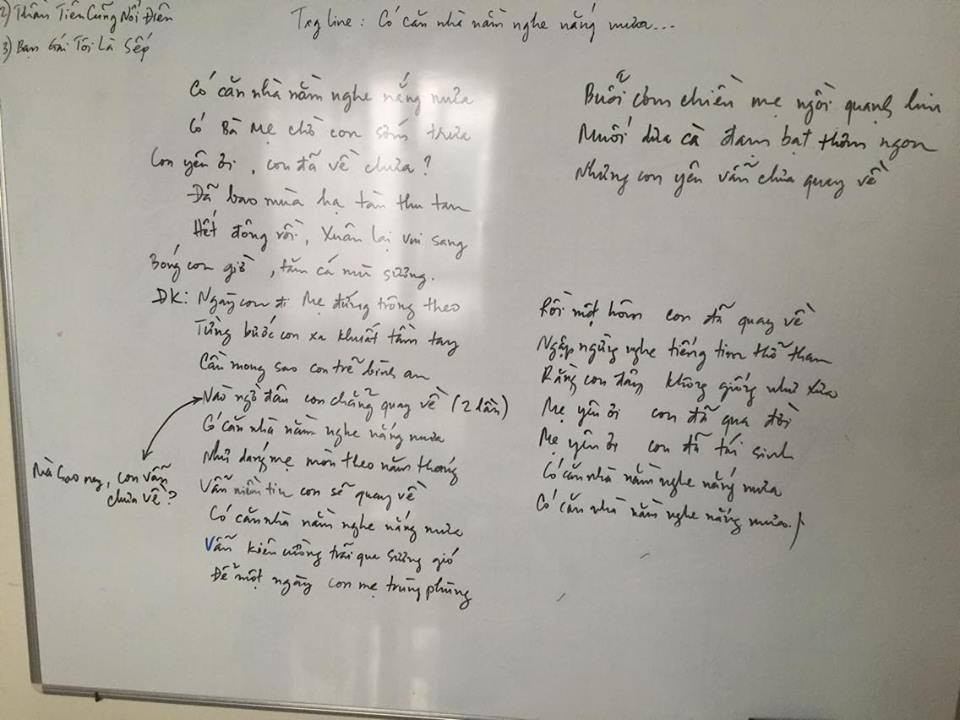 2) Thần Tiên Cũng Nổi Điên
3) Bạn Gái Tôi Là Sếp
Tag line : Có căn nhà nằm nghe nắng mưa...
Có căn nhà nằm nghe nắng mưa
Có Bà Mẹ chờ con sớm trưa
Con yêu ơi, con đã về chưa?
Đã bao mùa hạ tàn thu tan
Hết đông rồi, Xuân lại vui sang
Bóng con giờ, tăm cá mù sương.
ĐK: Ngày con đi Mẹ đứng trông theo
Từng bước con xa khuất tầm tay
Cầu mong sao con trẻ bình an
Nào ngờ đâu con chẳng quay về (2 lần)
Mà sao nay, con vẫn
chưa về?
Có căn nhà nằm nghe nắng mưa
Như dáng mẹ mòn theo năm tháng
Vẫn niềm tin con sẽ quay về
Có căn nhà nằm nghe nắng mưa
Vẫn kiên cường trải qua sương gió
Để một ngày con mẹ trùng phùng
Buổi cơm chiều mẹ ngồi quạnh hiu
Muối dưa cà đạm bạt thơm ngon
Nhưng con yêu vẫn chưa quay về
Rồi một hôm con đã quay về
Ngập ngừng nghe tiếng tim thổ than
Rằng con đây không giống như xưa
Mẹ yêu ơi con đã qua đời
Mẹ yêu ơi con đã tái sinh
Có căn nhà nằm nghe nắng mưa
Có căn nhà nằm nghe nắng mưa./